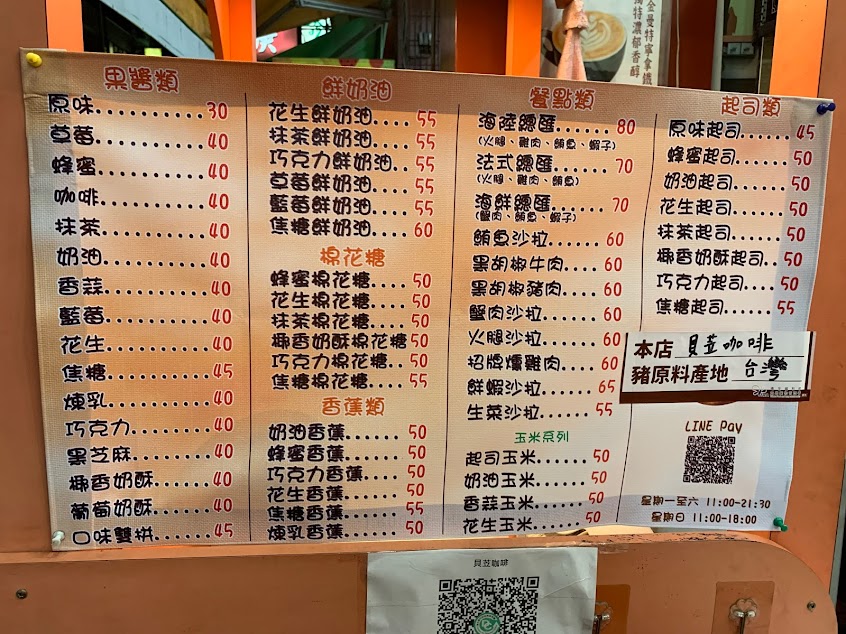 金曼特寧拿鐵
獨特濃郁香醇
果醬類
原味.........30
草莓.........40
蜂蜜.........40
咖啡.........40
抹茶.........40
奶油.........40
香蒜.........40
藍莓.........40
花生.........40
焦糖.........45
煉乳.........40
巧克力.......40
黑芝麻.......40
椰香奶酥.....40
葡萄奶酥.....40
口味雙拼.....45
鮮奶油
花生鮮奶油.....55
抹茶鮮奶油.....55
巧克力鮮奶油..55
草莓鮮奶油.....55
藍莓鮮奶油.....55
焦糖鮮奶油.....60
棉花糖
蜂蜜棉花糖.....50
花生棉花糖.....50
抹茶棉花糖.....50
椰香奶酥棉花糖50
巧克力棉花糖..50
焦糖棉花糖.....55
香蕉類
奶油香蕉.......50
蜂蜜香蕉.......50
巧克力香蕉....50
花生香蕉.......50
焦糖香蕉.......55
煉乳香蕉.......50
餐點類
海陸總匯.......80
(火腿、雞肉、鮪魚、蝦子)
法式總匯.......70
(火腿、雞肉、鮪魚)
海鮮總匯.......70
(蟹肉、鮪魚、蝦子)
鮪魚沙拉.......60
黑胡椒牛肉....60
黑胡椒豬肉....60
蟹肉沙拉.......60
火腿沙拉.......60
招牌燻雞肉....60
鮮蝦沙拉.......65
生菜沙拉.......55
玉米系列
起司玉米.......50
奶油玉米.......50
香蒜玉米.......50
花生玉米.......50
起司類
原味起司.......45
蜂蜜起司.......50
奶油起司.......50
花生起司.......50
抹茶起司.......50
椰香奶酥起司..50
巧克力起司....50
焦糖起司.......55
本店 貝荳咖啡
豬原料產地 台灣
LINE Pay
星期一至六 11:00-21:30
星期日 11:00-18:00
貝荳咖啡